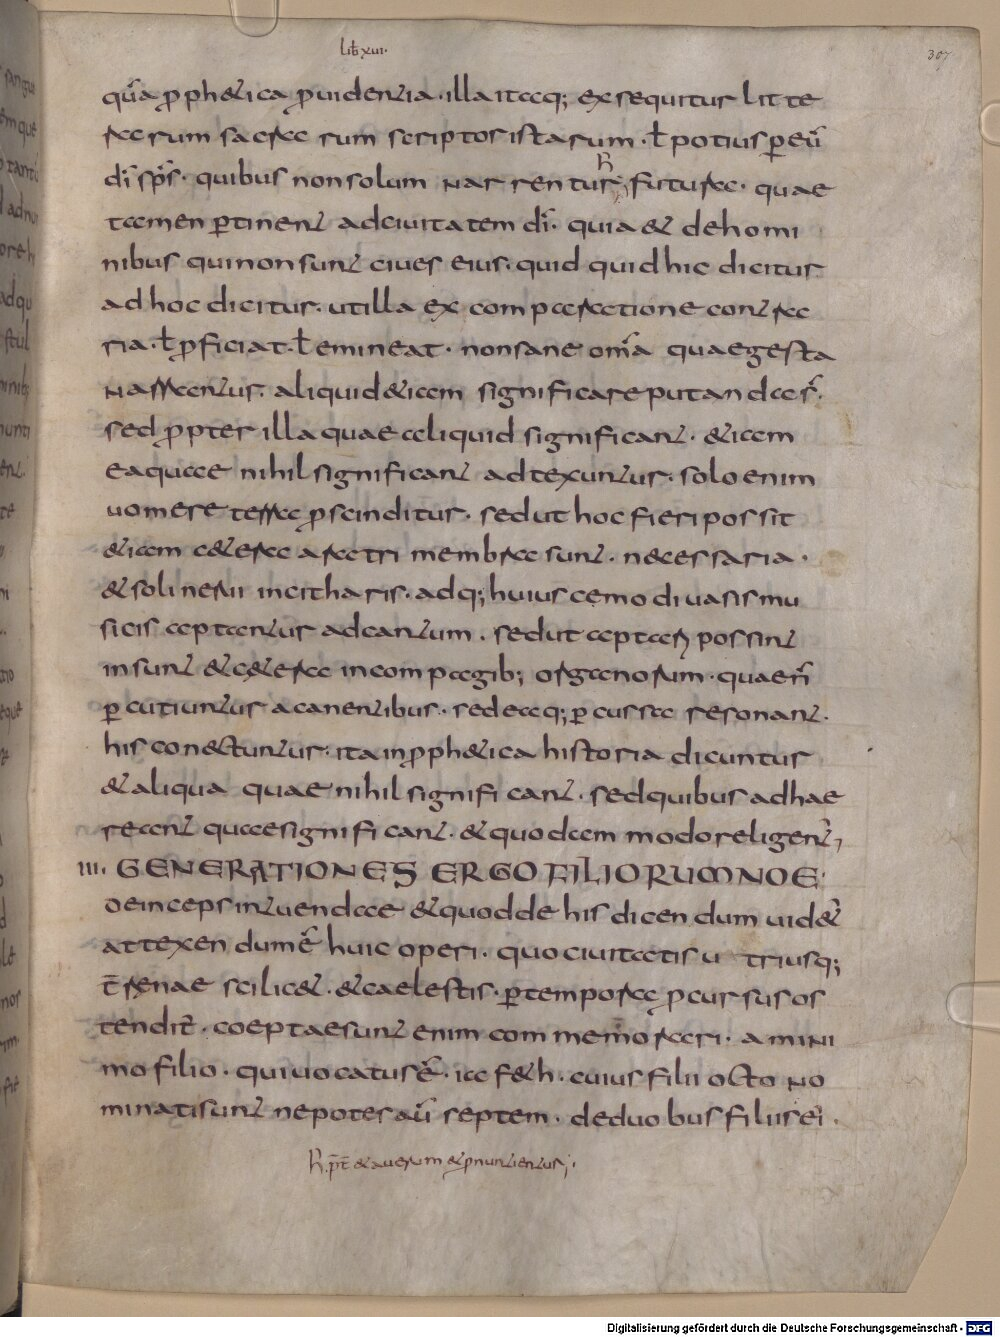 lib xvi.
307
qua͞ ꝓphetica ꝓuidentia · illa itaq; exsequitur litte
rarum sacrarum scriptor istarum · ł potius ꝑeu͞
di͞ sp͞s · quibus non solum narrentur; futura · quae
tamen ꝑtinent ad ciuitatem di͞ · quia & de homi
nibus qui non sunt ciues eius · quid quid hic dicitur
ad hoc dicitur · ut illa ex comparatione contra
ria · ł ꝓficiat · ł emineat · non sane om͞a quae gesta
narrantur · aliquid &iam significare putanda s͞ ·
sed ꝓpter illa quae aliquid significant · &iam
ea quae nihil significant ad texuntur · solo enim
uomere terra ꝓscinditur · sed ut hoc fieri possit
&iam c&era aratri membra sunt · necessaria ·
& soli nerui in citharis · adq; huius cemodi uasis mu
sicis aptantur ad cantum · sed ut aptari possint
insunt & c&era in compagib; organorum · quae n͞
ꝑcutiuntur a canentibus · sed ea q; ꝑcussa resonant ·
his conectuntur · ita in ꝓph&ica historia dicuntur
& aliqua quae nihil significant · sed quibus adhae
reant quae significant · & quodam modo religent;
III. GENERATIONES ERGO FILIORUM NOE ·
deinceps intuendae & quod de his dicendum uid&͞
attexendum e͞ huic operi · quo ciuitatis utriusq;
t͞renae scilic& · & caelestis · ꝑ tempora ꝓcursus os
tendit͞ · coeptae sunt enim commemorari · a mini
mo filio · qui uocatus e͞ · iaf&h · cuius filii octo no
minati sunt nepotes au͞ septem · de duobus filiis ei͞ ·
h͞ · p͞t͞ & auerum & ꝓnuntientur;
Digitalisierung gefördert durch die Deutsche Forschungsgemeinschaft - DFG